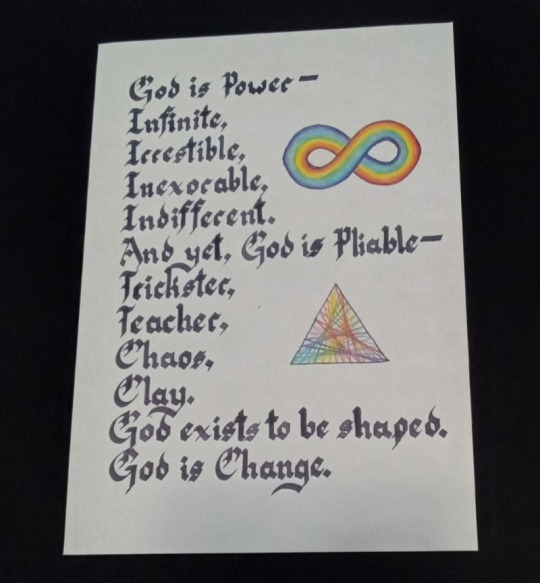 God is Power—
Infinite,
Irrestible,
Inexorable,
Indifferent.
And yet, God is Pliable—
Trickster,
Teacher,
Chaos,
Clay.
God exists to be shaped.
God is Change.